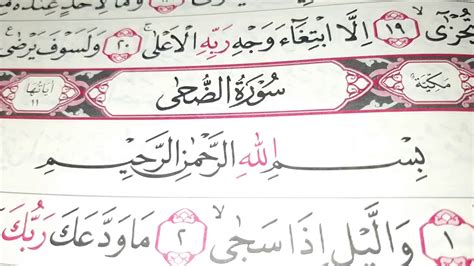 تُجْزَىٰ ١٩ إِلَّا ابْتِغَاءَ وَجْهِ رَبِّهِ الْأَعْلَىٰ ٢٠ وَلَسَوْفَ يَرْضَىٰ
مَكِّيَّة سُورَةُ الضُّحَى آيَاتُهَا ١١
بِسْمِ اللَّهِ الرَّحْمَٰنِ الرَّحِيمِ
١ وَاللَّيْلِ إِذَا سَجَىٰ ٢ مَا وَدَّعَكَ رَبُّكَ